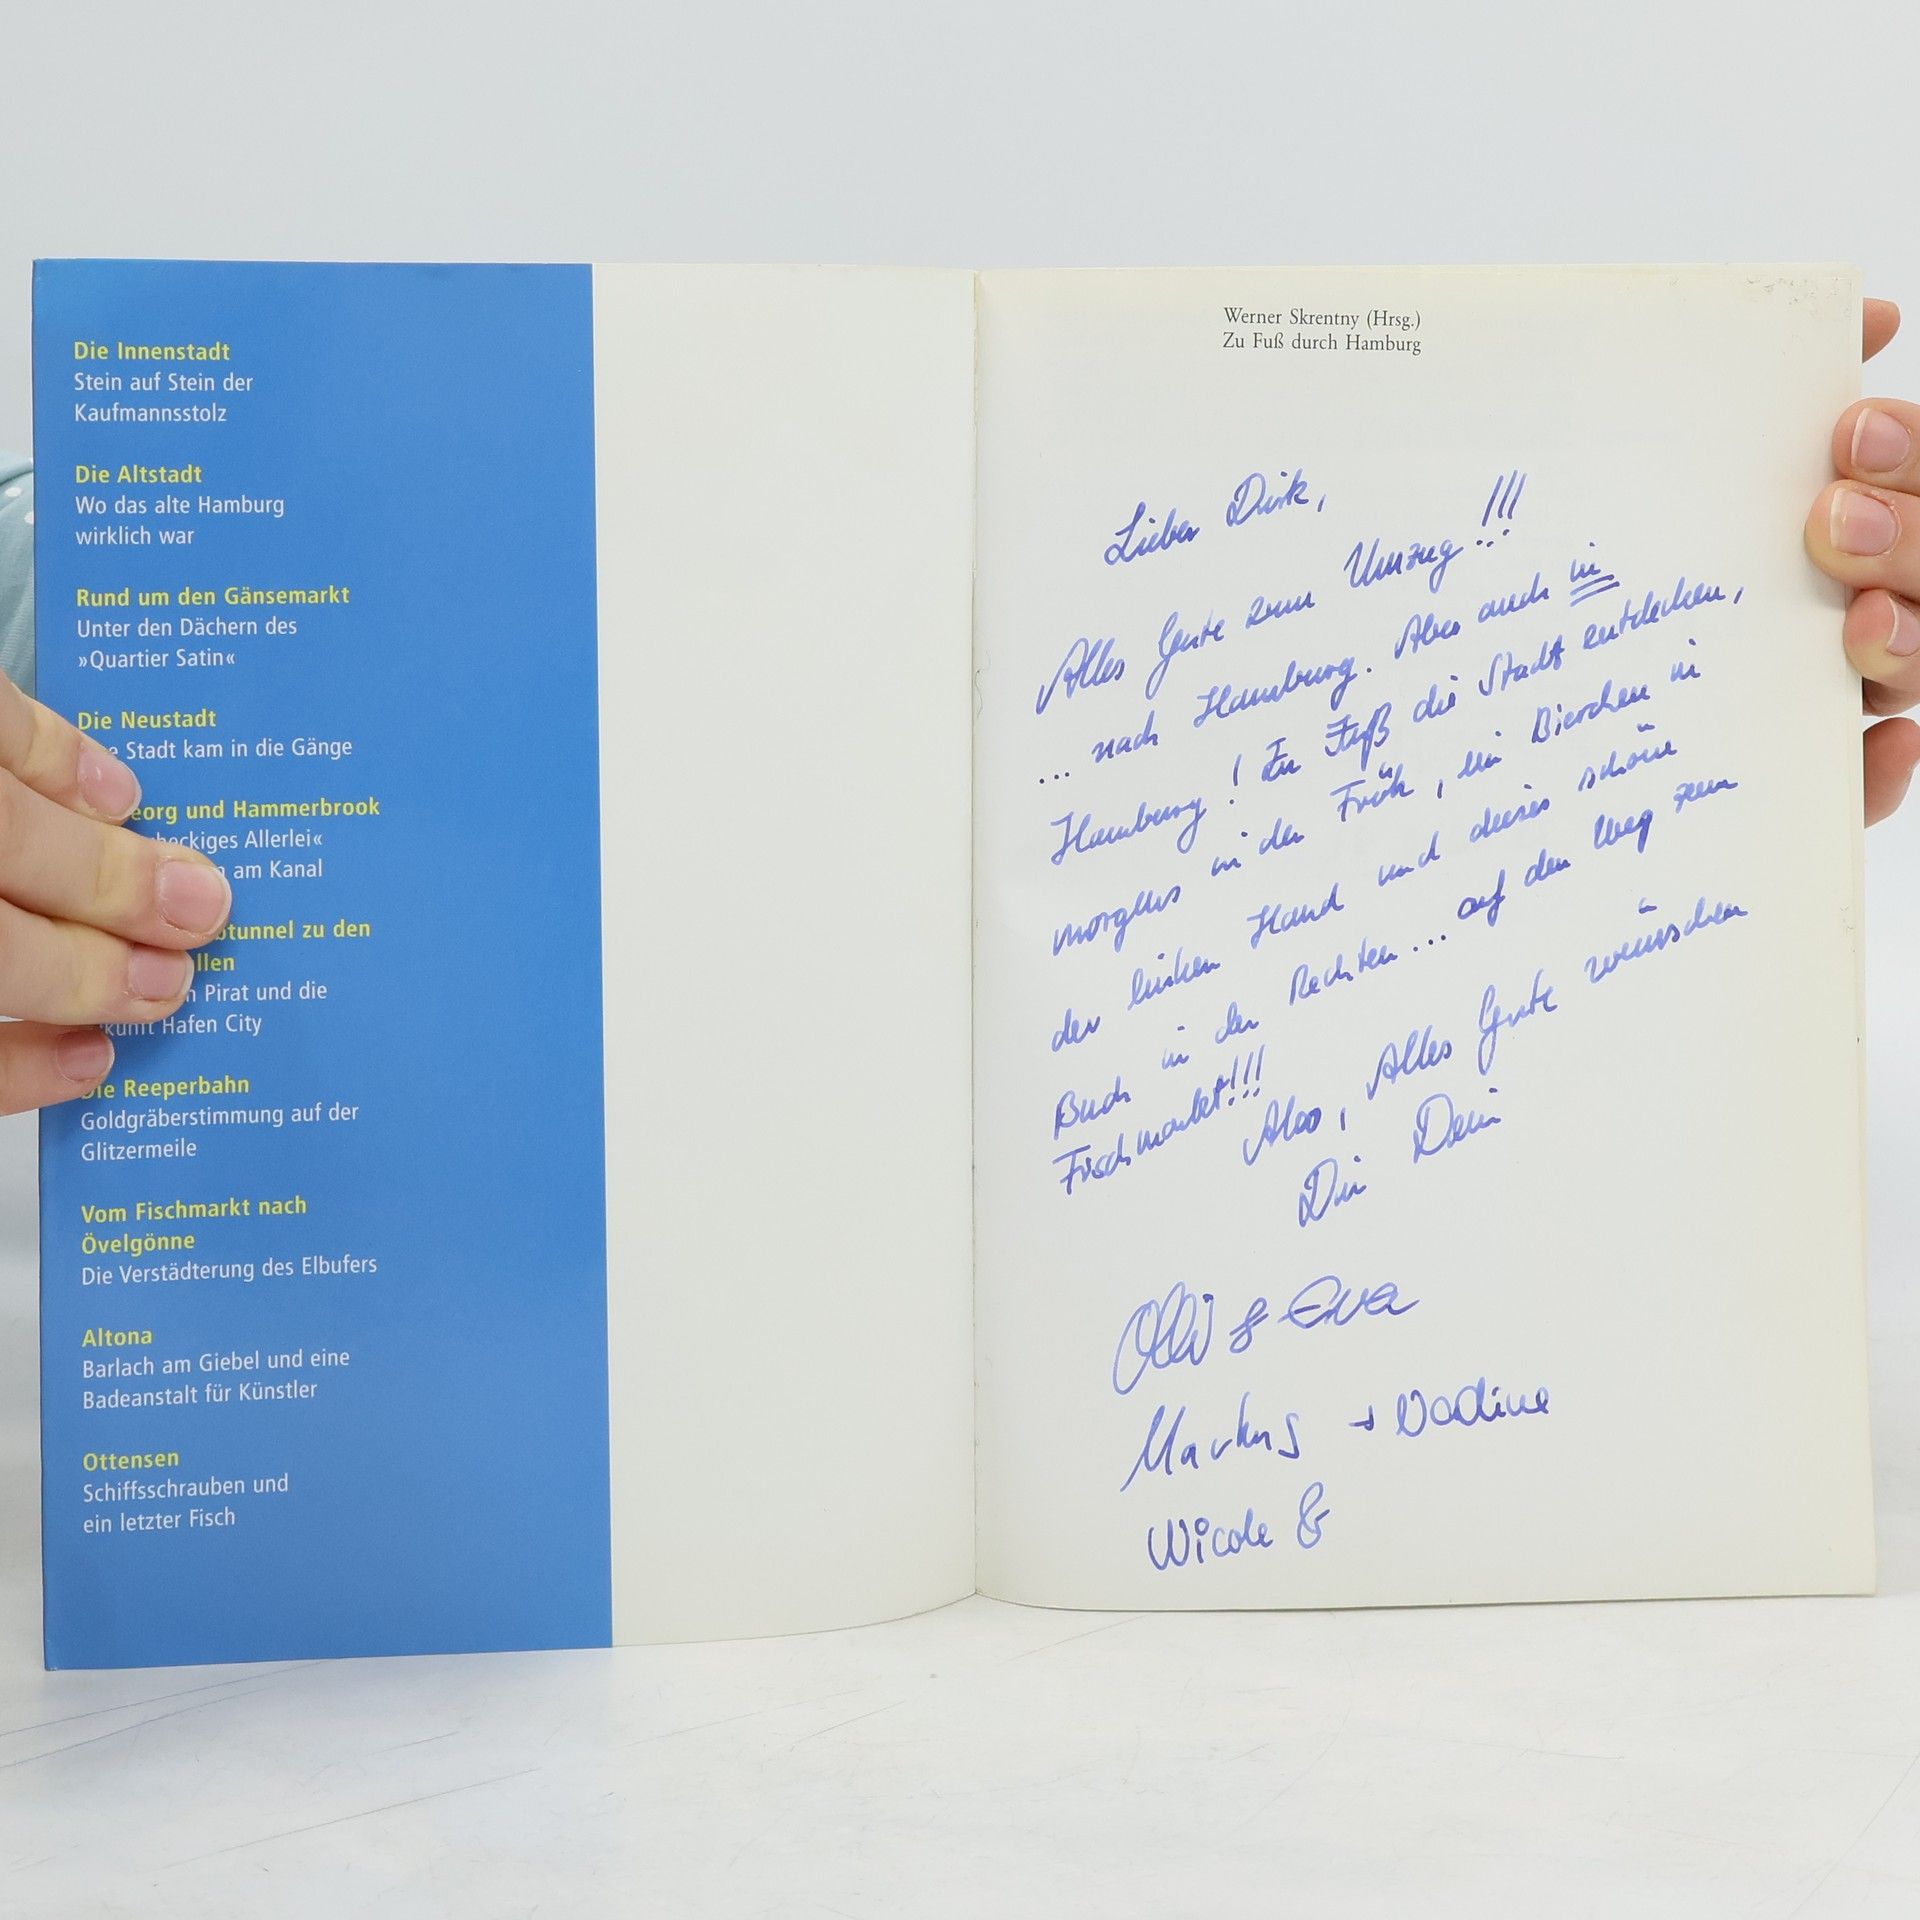 Die Innenstadt
Stein auf Stein der
Kaufmannsstolz
Die Altstadt
Wo das alte Hamburg
wirklich war
Rund um den Gänsemarkt
Unter den Dächern des
»Quartier Satin«
Die Neustadt
Stadt kam in die Gänge
und Hammerbrook
Allerlei«
am Kanal
zu den
Pirat und die
Hafen City
Die Reeperbahn
Goldgräberstimmung auf der
Glitzermeile
Vom Fischmarkt nach
Övelgönne
Die Verstädterung des Elbufers
Altona
Barlach am Giebel und eine
Badeanstalt für Künstler
Ottensen
Schiffsschrauben und
ein letzter Fisch
Werner Skrentny (Hrsg.)
Zu Fuß durch Hamburg
Lieber Dirk,
Alles Gute zum Umzug!!!
... nach Hamburg. Aber auch in
Hamburg! Zu Fuß die Stadt entdecken,
morgens in der Früh, ein Bierchen in
der linken Hand und dieses schöne
Buch in der Rechten... auf dem Weg zum
Fischmarkt!!!
Also, Alles Gute wünschen
Dir Dein
Olli & Eva
Markus + Nadine
Nicole &